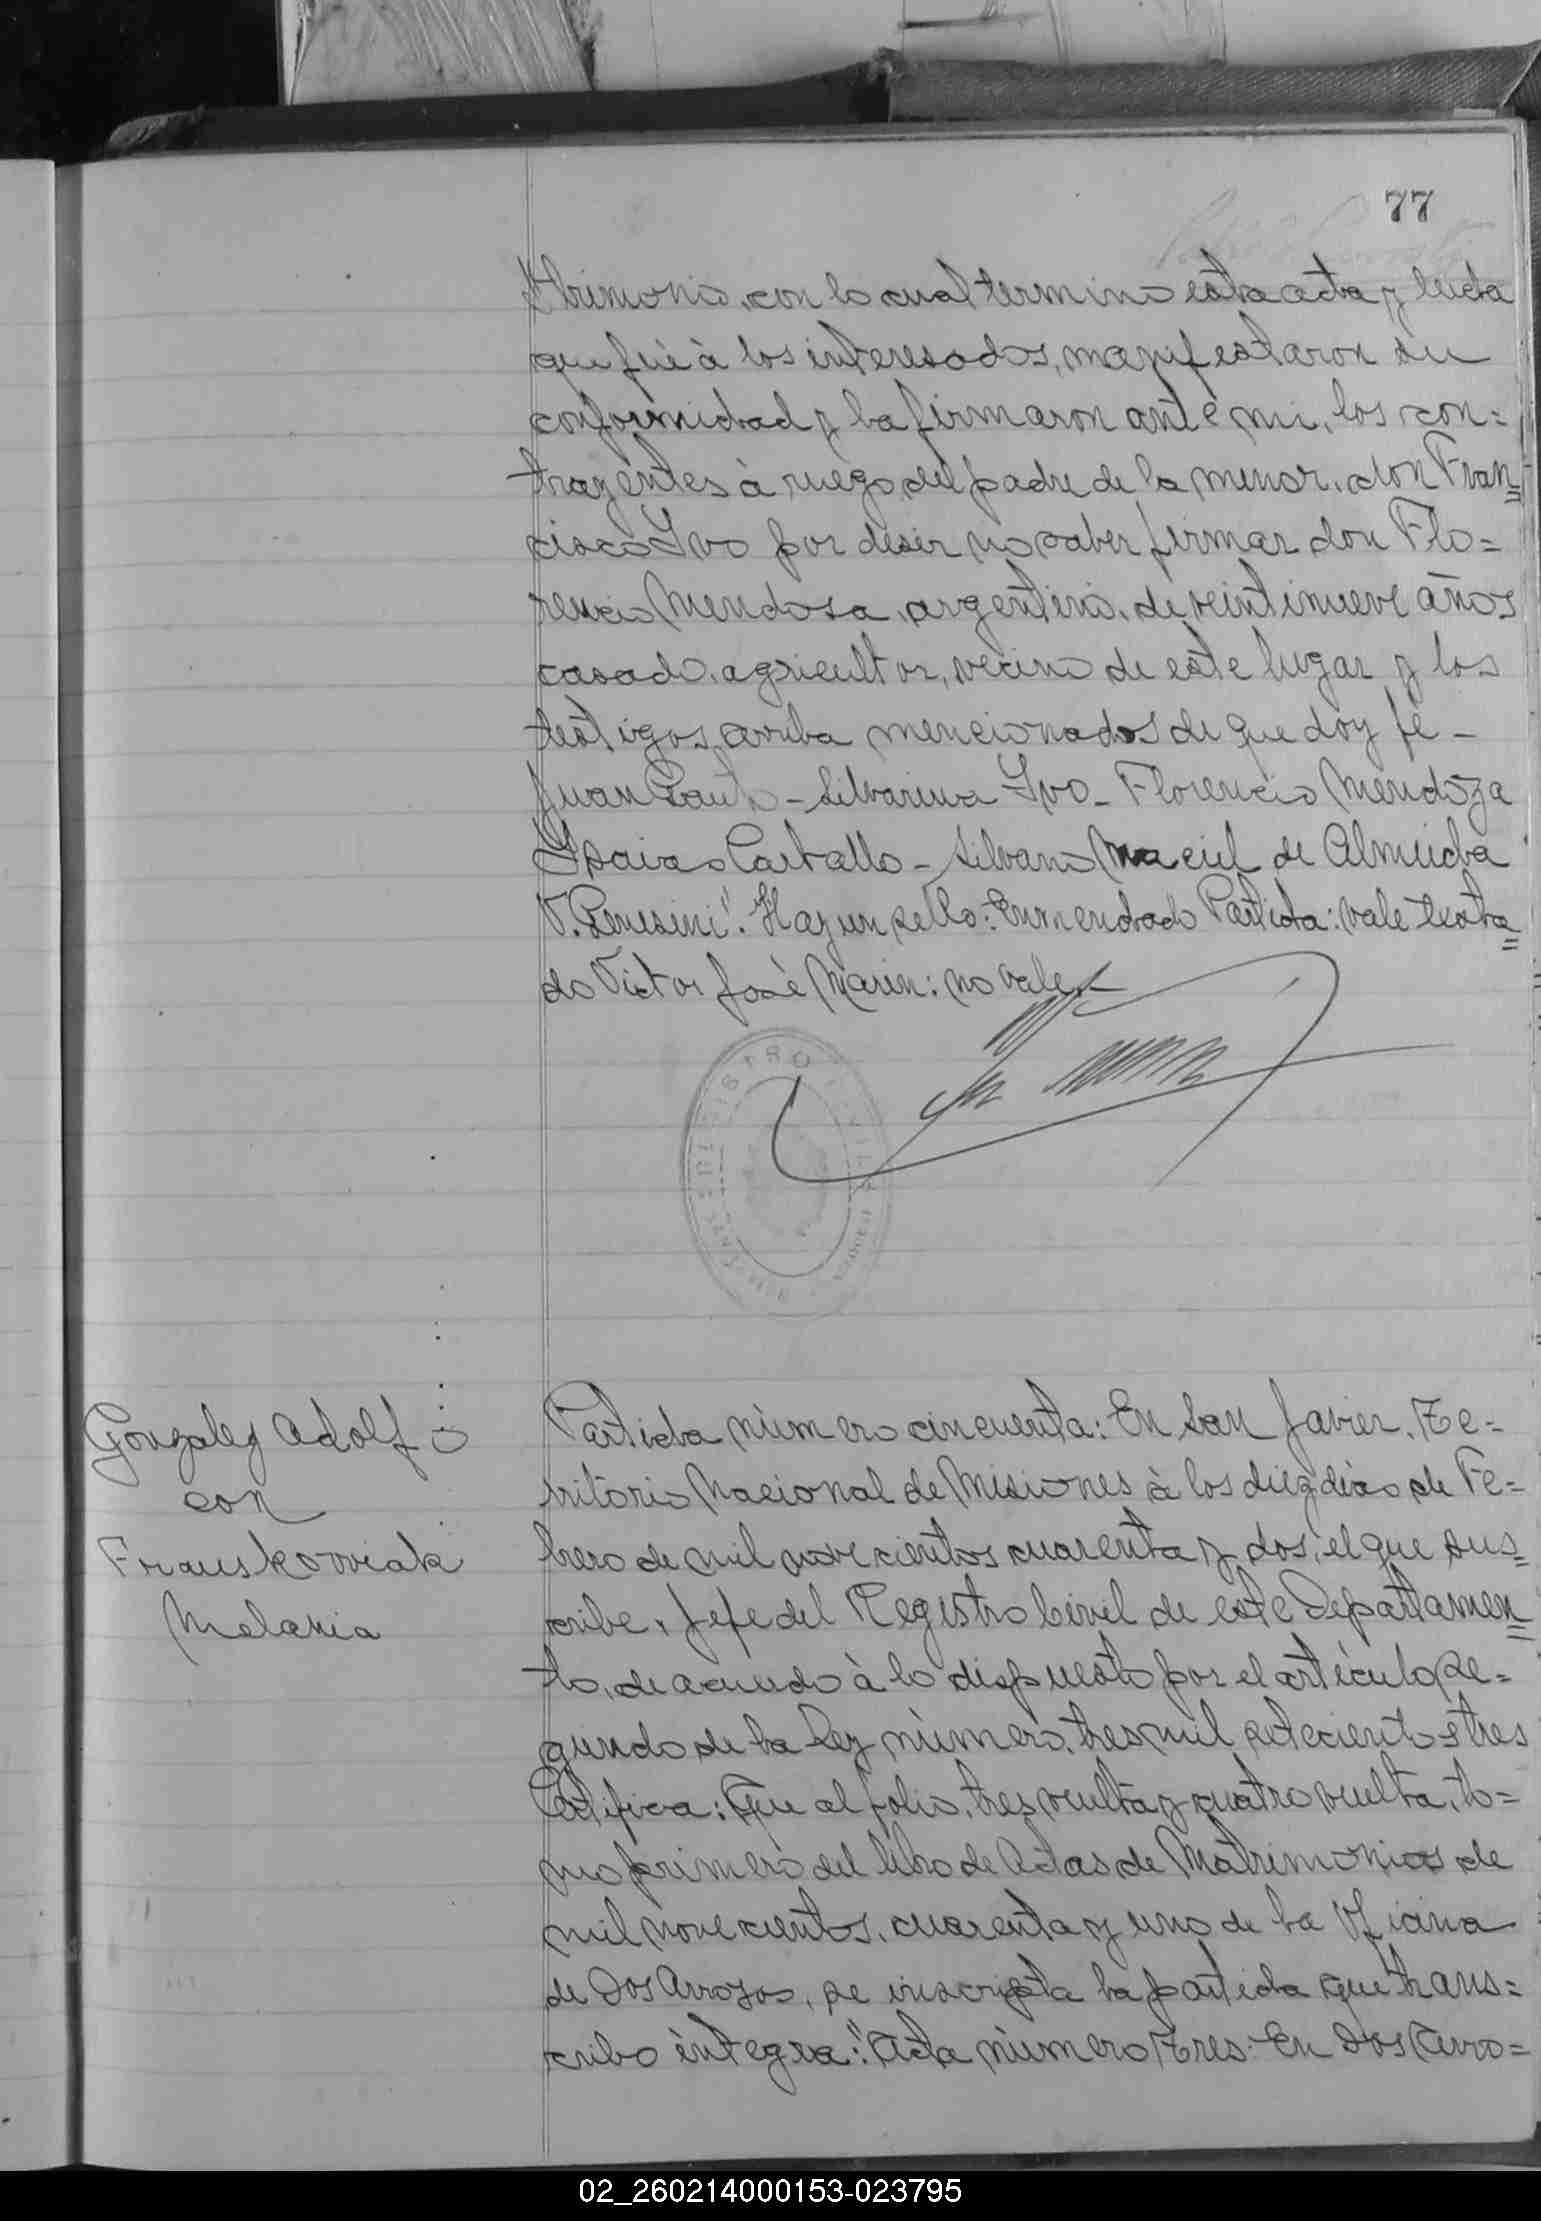 77
trimonio, con lo cual termino esta acta y leida
que fué à los interesados, manifestaron su
conformidad y la firmaron ante mi, los con=
trayentes à ruego del padre de la menor, don Fran=
cisco Ivo por desir no saber firmar don Flo=
rencio Mendosa, argentino, de veintinueve años
casado, agricultor, vecino de este lugar y los
testigos arriba mencionados de que doy fé -
Juan Couto - Silvarina Ivo - Florencio Mendoza
Ysaias Carballo - Silvano Maciel de Almeida
V. Penesini". Hay un sello: Enmendado Partida: vale testa=
do Victor José Marin: no vale. -
REGISTRO CIVIL
Gonzalez Adolfo
con
Franskowiak
Melania
Partida nùmero cincuenta: En San Javier, Te=
rritorio Nacional de Misiones à los diez dias de Fe=
brero de mil novecientos cuarenta y dos, el que sus=
cribe, Jefe del Registro Civil de este Departamen=
to, de acuerdo à lo dispuesto por el artìculo se=
gundo de la Ley nùmero, tres mil setecientos tres
Certifica: Que al folio, tres vuelta y cuatro vuelta, to=
mo primero del libro de Actas de Matrimonios de
mil novecientos, cuarenta y uno de la Oficina
de Dos Arroyos, se inscripta la partida que trans=
cribo ìntegra: "Acta nùmero Tres: En Dos Arro=
02_260214000153-023795